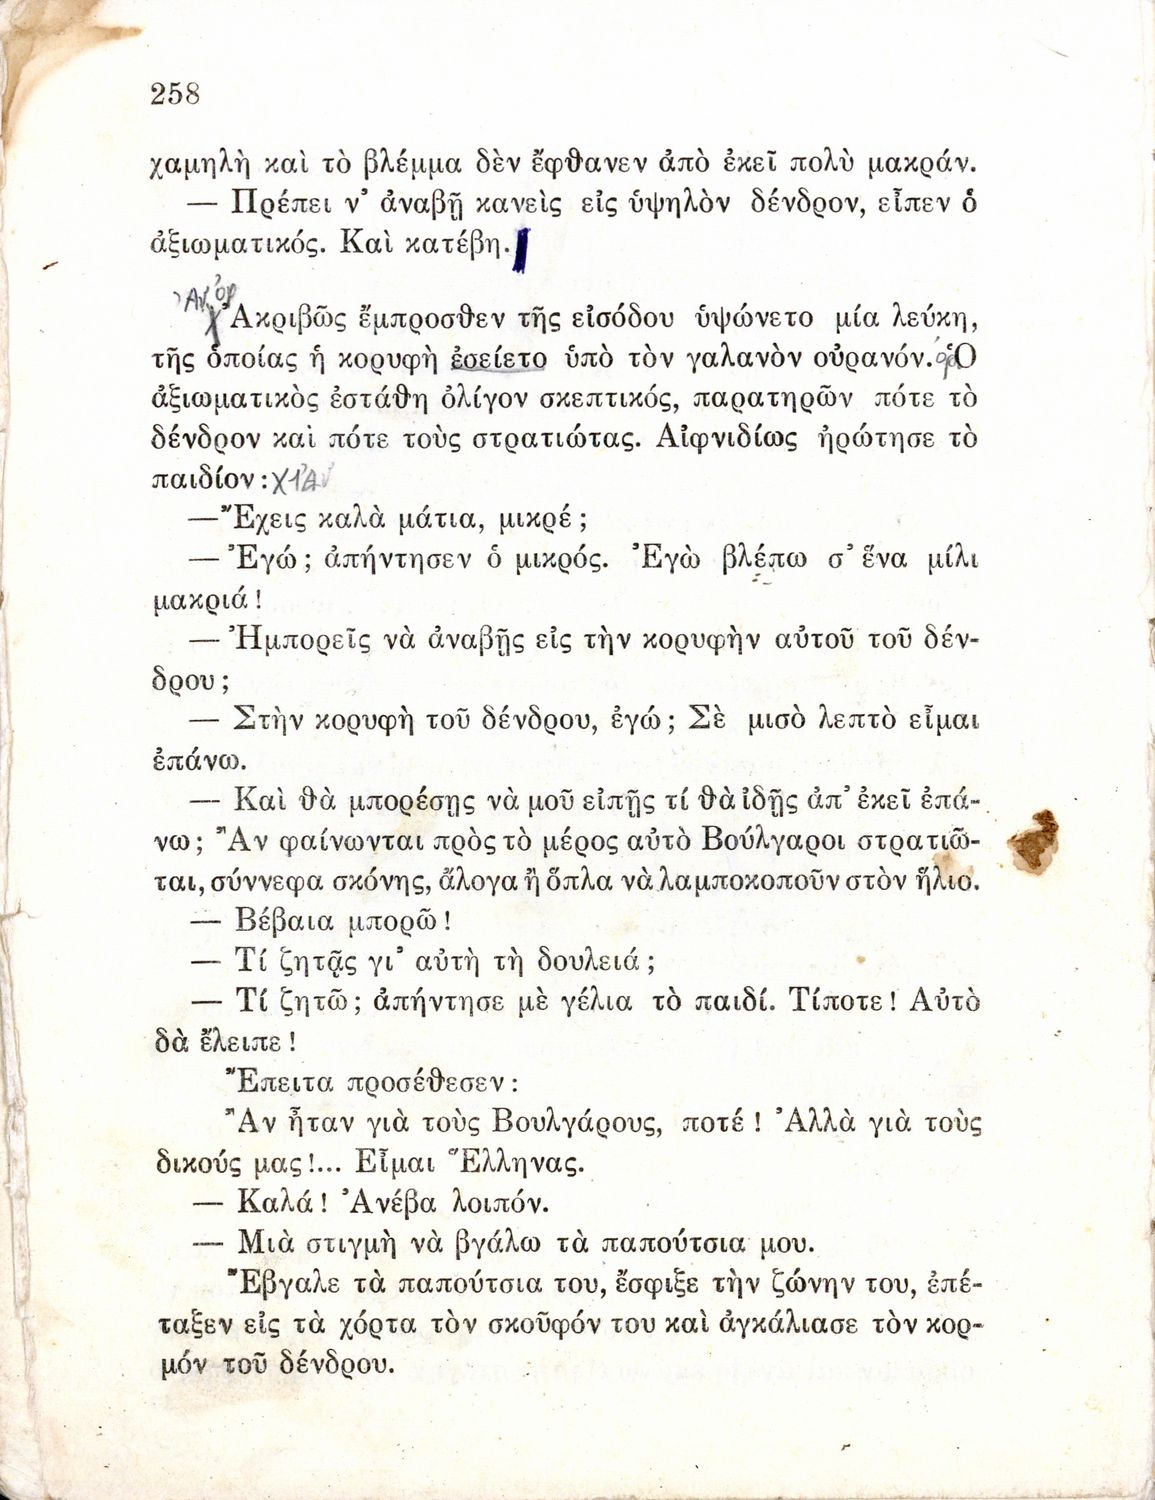 258
χαμηλὴ καὶ τὸ βλέμμα δὲν ἔφθανεν ἀπὸ ἐκεῖ πολὺ μακράν.
— Πρέπει ν᾿ ἀναβῇ κανεὶς εἰς ὑψηλὸν δένδρον, εἶπεν ὁ
ἀξιωματικός. Καὶ κατέβη.
Ἀκριβῶς ἔμπροσθεν τῆς εἰσόδου ὑψώνετο μία λεύκη,
τῆς ὁποίας ἡ κορυφὴ ἐσείετο ὑπὸ τὸν γαλανὸν οὐρανόν. Ὁ
ἀξιωματικὸς ἐστάθη ὀλίγον σκεπτικός, παρατηρῶν πότε τὸ
δένδρον καὶ πότε τοὺς στρατιώτας. Αἰφνιδίως ἠρώτησε τὸ
παιδίον :
— Ἔχεις καλὰ μάτια, μικρέ ;
— Ἐγώ ; ἀπήντησεν ὁ μικρός. Ἐγὼ βλέπω σ᾿ ἕνα μίλι
μακριά !
— Ἠμπορεῖς νὰ ἀναβῇς εἰς τὴν κορυφὴν αὐτοῦ τοῦ δέν-
δρου ;
— Στὴν κορυφὴ τοῦ δένδρου, ἐγώ ; Σὲ μισὸ λεπτὸ εἶμαι
ἐπάνω.
— Καὶ θὰ μπορέσῃς νὰ μοῦ εἰπῇς τί θὰ ἰδῇς ἀπ᾿ ἐκεῖ ἐπά-
νω ; Ἂν φαίνωνται πρὸς τὸ μέρος αὐτὸ Βούλγαροι στρατιῶ-
ται, σύννεφα σκόνης, ἄλογα ἢ ὅπλα νὰ λαμποκοποῦν στὸν ἥλιο.
— Βέβαια μπορῶ !
— Τί ζητᾷς γι᾿ αὐτὴ τὴ δουλειά ;
— Τί ζητῶ ; ἀπήντησε μὲ γέλια τὸ παιδί. Τίποτε ! Αὐτὸ
δὰ ἔλειπε !
Ἔπειτα προσέθεσεν :
Ἂν ἦταν γιὰ τοὺς Βουλγάρους, ποτέ ! Ἀλλὰ γιὰ τοὺς
δικούς μας !... Εἶμαι Ἕλληνας.
— Καλά ! Ἀνέβα λοιπόν.
— Μιὰ στιγμὴ νὰ βγάλω τὰ παπούτσια μου.
Ἔβγαλε τὰ παπούτσια του, ἔσφιξε τὴν ζώνην του, ἐπέ-
ταξεν εἰς τὰ χόρτα τὸν σκοῦφόν του καὶ ἀγκάλιασε τὸν κορ-
μόν τοῦ δένδρου.